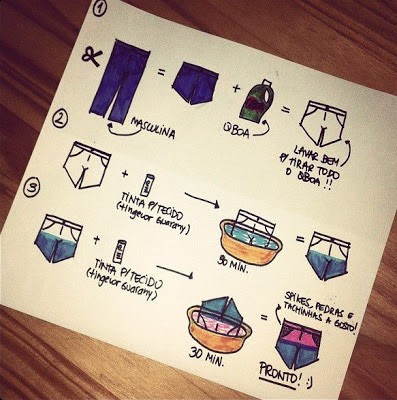 1
=
+
=
MASCULINA
QBOA
LAVAR BEM
P/ TIRAR TODO
O QBOA!!
2
+
=
TINTA P/ TECIDO
(tingecor Guarany)
90 MIN.
3
+
TINTA P/ TECIDO
(tingecor Guarany)
=
30 MIN.
SPIKES, PEDRAS E
TACHINHAS A GOSTO!
PRONTO! :)